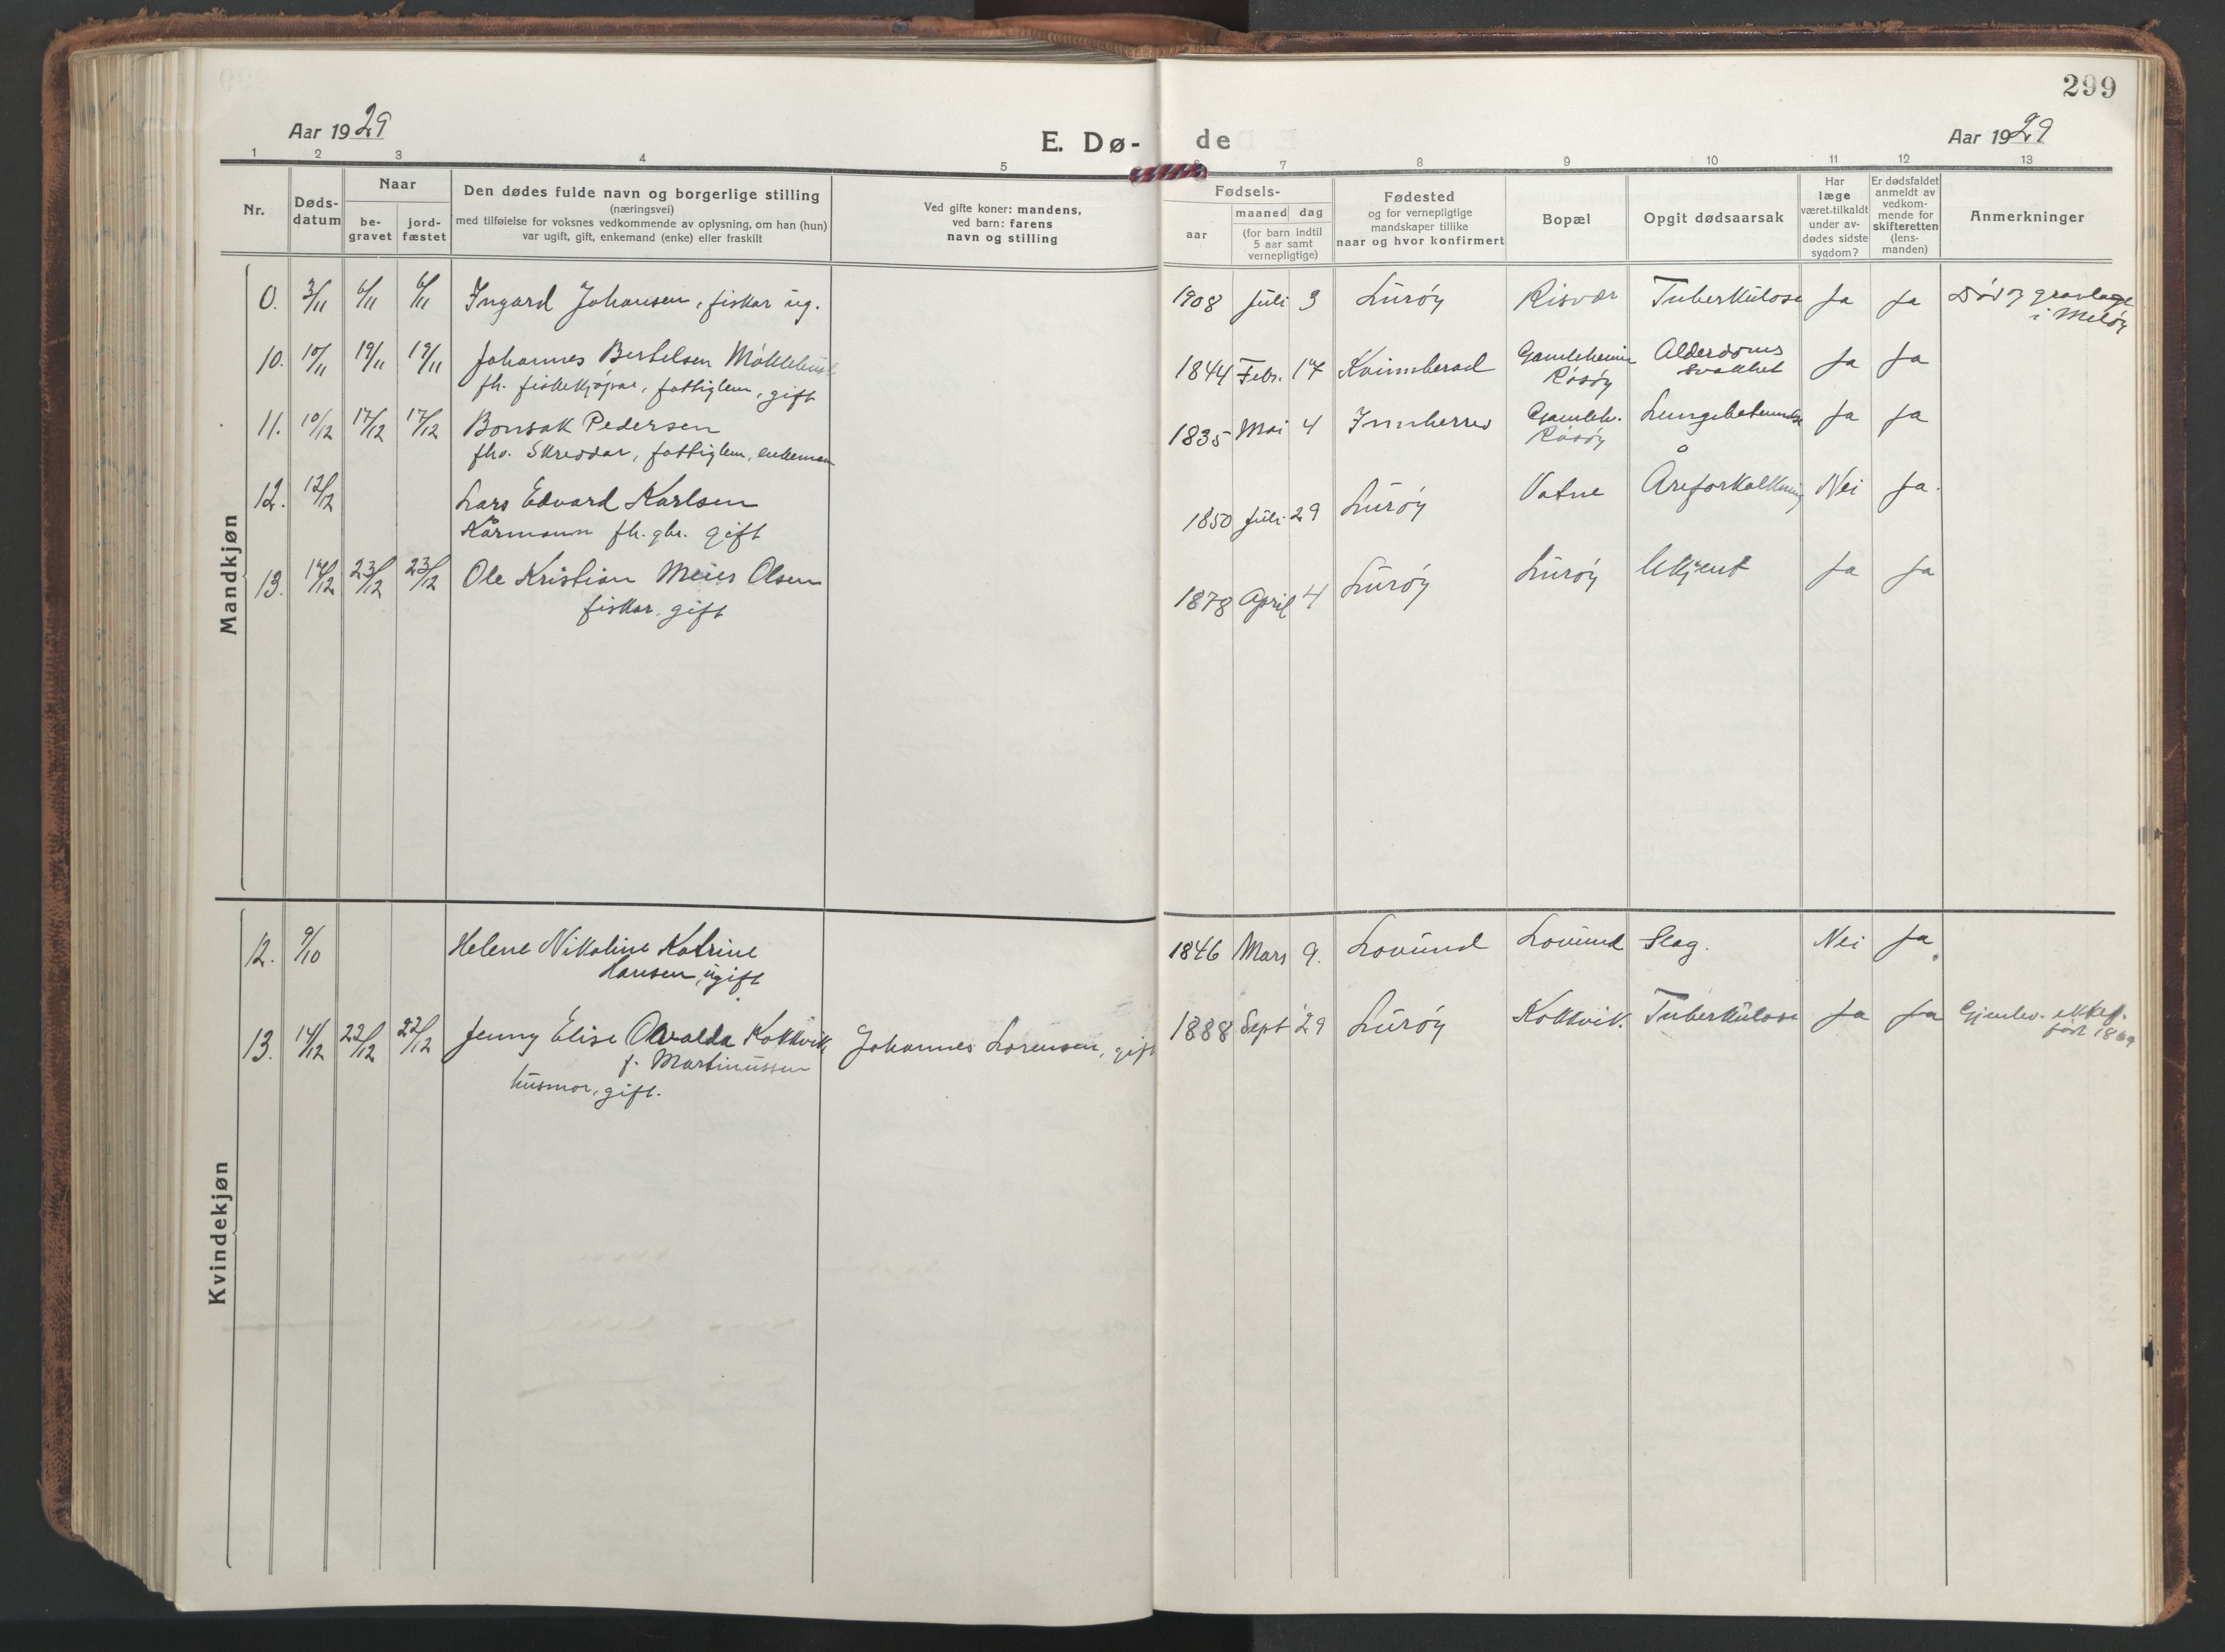 299
Aar 1929
E. Dø-
de
Aar 1929
1 2 3 4 5 6 7 8 9 10 11 12 13
Nr.
Døds-
datum
Naar
be-
gravet
jord-
fæstet
Den dødes fulde navn og borgerlige stilling
(næringsvei)
med tilføielse for voksnes vedkommende av oplysning, om han (hun)
var ugift, gift, enkemand (enke) eller fraskilt
Ved gifte koner: mandens,
ved barn: farens
navn og stilling
Fødsels-
aar
maaned dag
(for barn indtil
5 aar samt
vernepligtige)
Fødested
og for vernepligtige
mandskaper tillike
naar og hvor konfirmert
Bopæl
Opgit dødsaarsak
Har
læge
været tilkaldt
under av-
dødes sidste
sygdom?
Er dødsfaldet
anmeldt av
vedkom-
mende for
skifteretten
(lens-
manden)
Anmerkninger
Mandkjøn
0. 3/11 6/11 6/11 Ingard Johansen, fiskar ug. 1908 Juli 3 Lurøy Risvær Tuberkulose Ja Ja Død og gravlagt
i Meløy
10. 10/11 19/11 19/11 Johannes Bertelsen Møklebust 1844 Febr. 17 Kvinnherad Gamleheim Alderdoms Ja Ja
fh. fiskekjøpar, fattiglem, gift Råsøy svakhet
11. 10/12 17/12 17/12 Bonsak Pedersen 1835 Mai 4 Innherred Gamleh. Lungebetennelse Ja Ja
fhv. Skreddar, fattiglem, enkemann Råsøy
12. 12/12 Lars Edvard Karlsen 1850 Juli 29 Lurøy Vatne Åreforkalkning Nei Ja.
Kårmann fh. gbr. gift
13. 14/12 23/12 23/12 Ole Kristian Meier Olsen 1878 April 4 Lurøy Lurøy Ukjent Ja Ja
fiskar, gift
Kvindekjøn
12. 9/10 Helene Nikoline Katrine 1846 Mars 9. Lovund Lovund Slag. Nei Ja.
Hansen, ugift
13. 14/12 22/12 22/12 Jenny Elise Osvalda Kokkvik Johannes Lorensen, gift 1888 Sept 29 Lurøy Kokkvik. Tuberkulose Ja Ja Gjenlev. ektef.
f. Martinussen
husmor, gift.